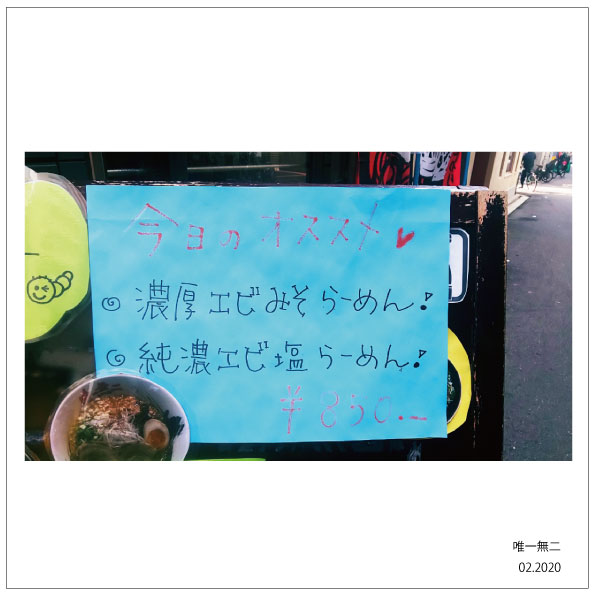 今日のオススメ♥
濃厚エビみそらーめん!
純濃エビ塩らーめん!
¥850.—
唯一無二
02.2020